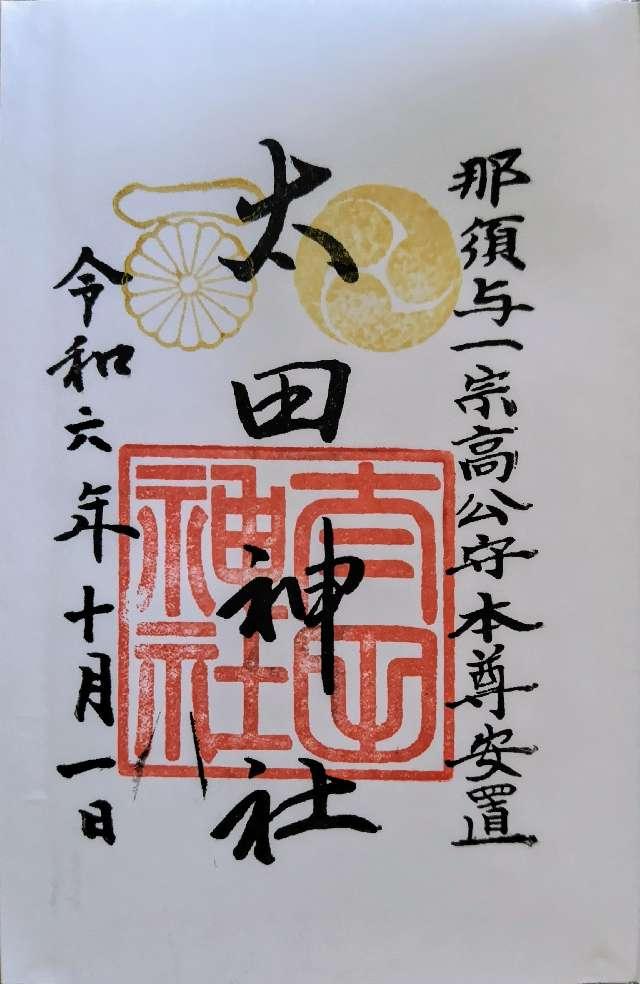 那須与一宗高公守本尊安置
太田神社
太田神社
令和六年十月一日